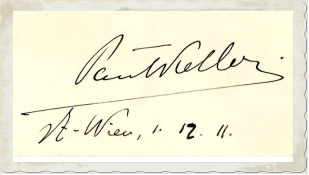 Paul Keller
Wien, 1. 12. 11.